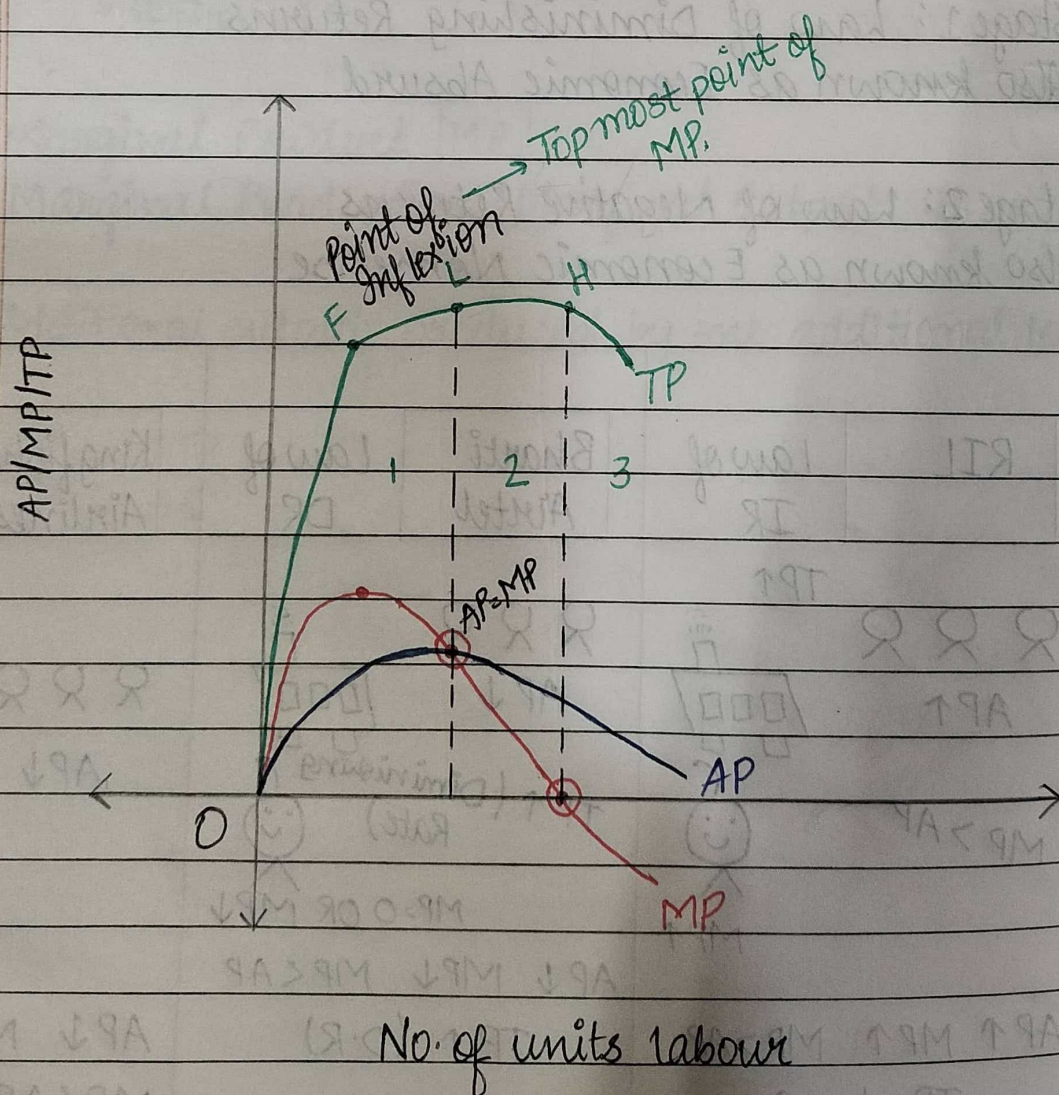 Top most point of
MP.
Point of
Inflexion
F
L
H
TP
AP/MP/TP
1
2
3
AP=MP
AP
O
MP
No. of units labour